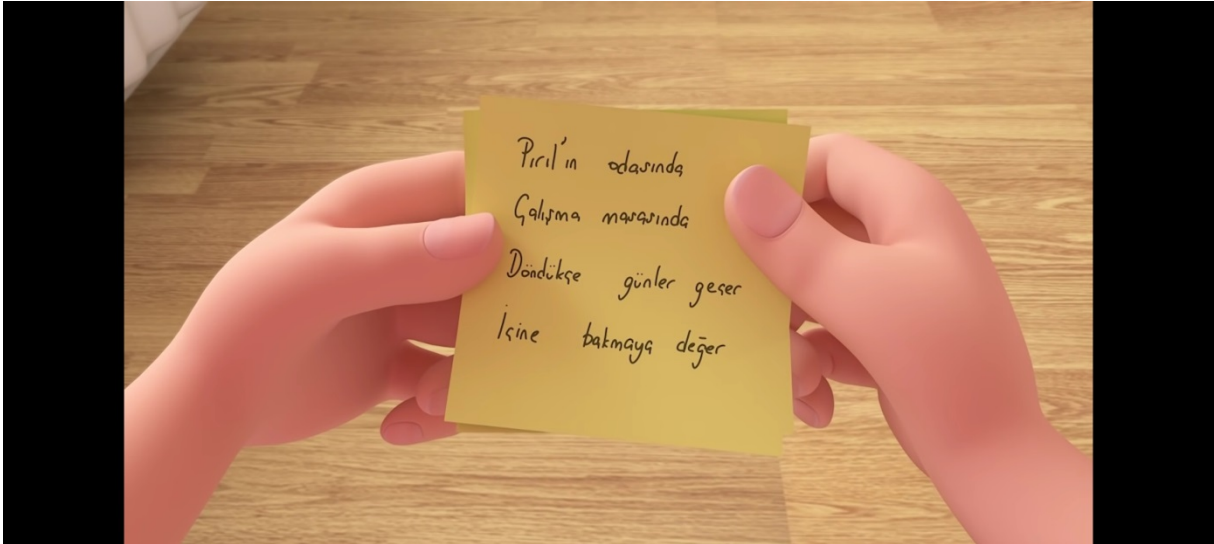 Pırıl'ın odasında
Çalışma masasında
Döndükçe günler geçer
İçine bakmaya değer